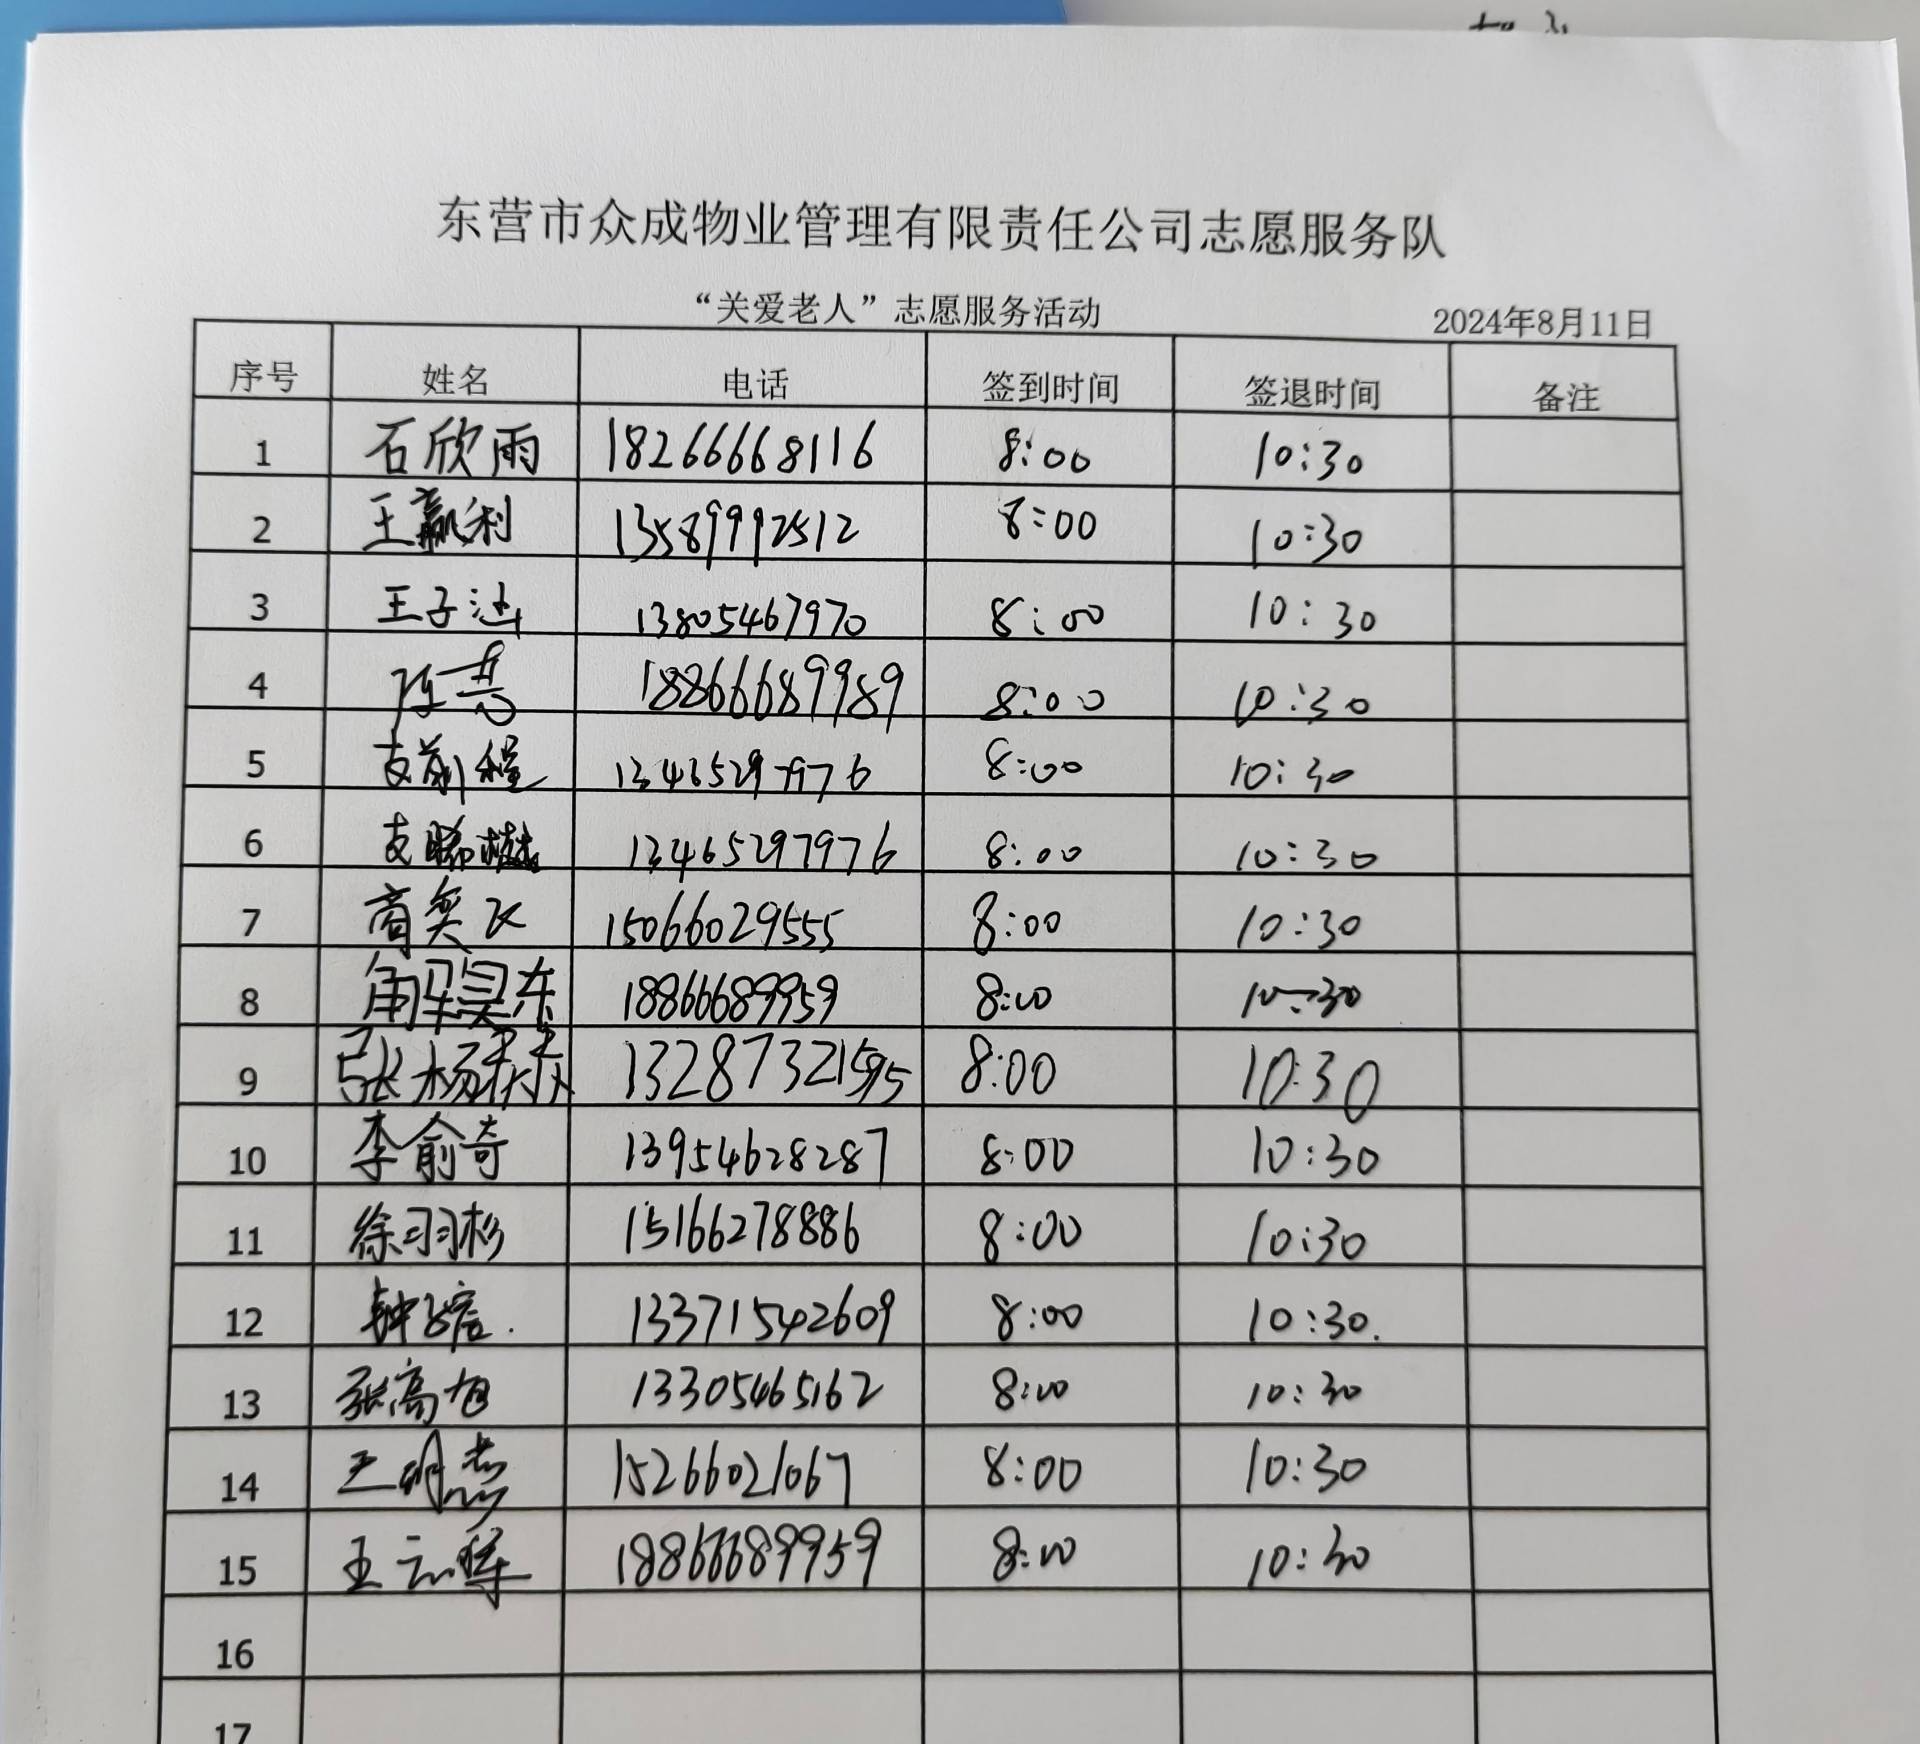 东营市众成物业管理有限责任公司志愿服务队
“关爱老人”志愿服务活动 2024年8月11日
序号 姓名 电话 签到时间 签退时间 备注
1 石欣雨 18266668116 8:00 10:30
2 王赢利 13589992512 8:00 10:30
3 王子涵 13805467970 8:00 10:30
4 陈喜 18866689989 8:00 10:30
5 支前程 13465297976 8:00 10:30
6 支晞樾 13465297976 8:00 10:30
7 商奕飞 15066029555 8:00 10:30
8 解昊东 18866689959 8:00 10:30
9 张杨秣 13287321595 8:00 10:30
10 李俞奇 13954628287 8:00 10:30
11 徐羽杉 15166278886 8:00 10:30
12 钟 13371542609 8:00 10:30.
13 张高旭 13305465162 8:00 10:30
14 王明志 15266021067 8:00 10:30
15 王云 18866689959 8:00 10:30
16
17